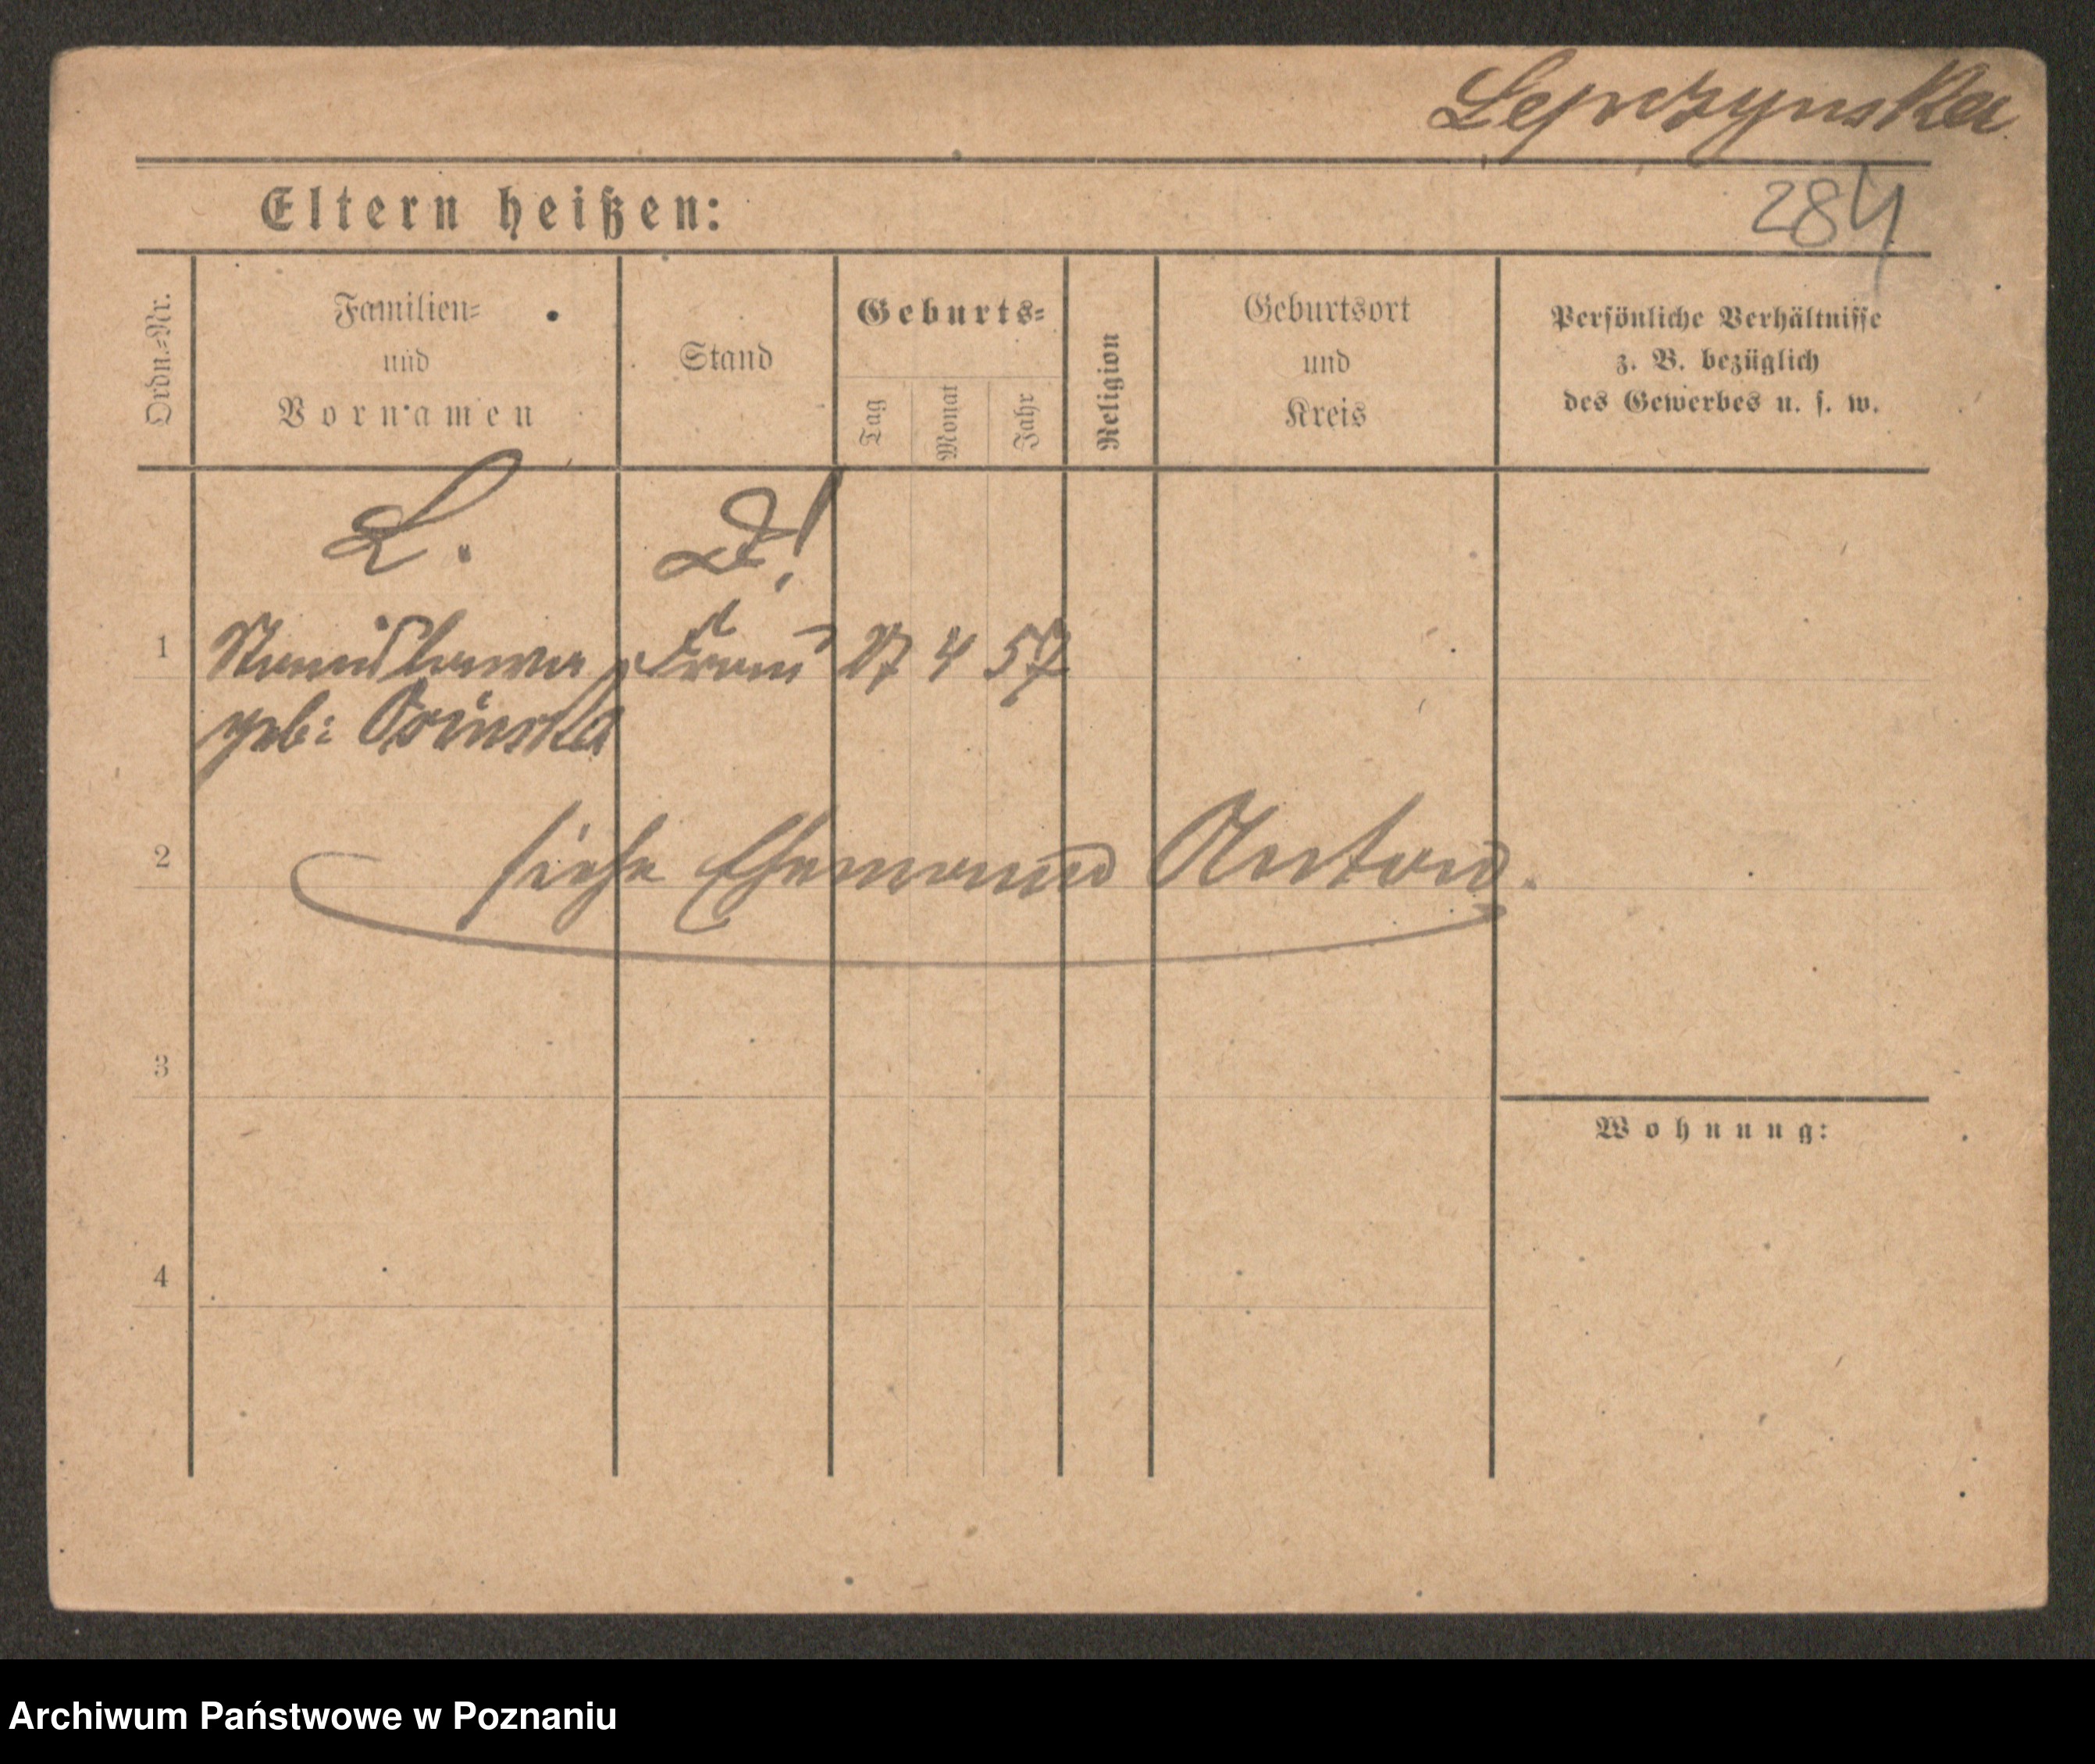 Lepczynska
Eltern heißen:
284
Ordn.=Nr.
Familien=
und
Vornamen
Stand
Geburts=
Tag
Monat
Jahr
Religion
Geburtsort
und
Kreis
Persönliche Verhältnisse
z. B. bezüglich
des Gewerbes u. s. w.
L.
1 Stanislawa Frau 27 4 57
geb: Osinska
2 siehe Ehemann Anton.
3
Wohnung:
4
Archiwum Państwowe w Poznaniu